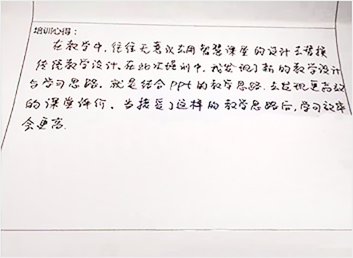 培训心得：
在教学中，往往无意识去用智慧课堂的设计去替换
传统教学设计。在此次培训中，我发现了新的教学设计
与学习思路，就是结合PPt的教学思路，去发现更高效
的课堂评价、当接受了这样的教学思路后，学习效率
会更高.